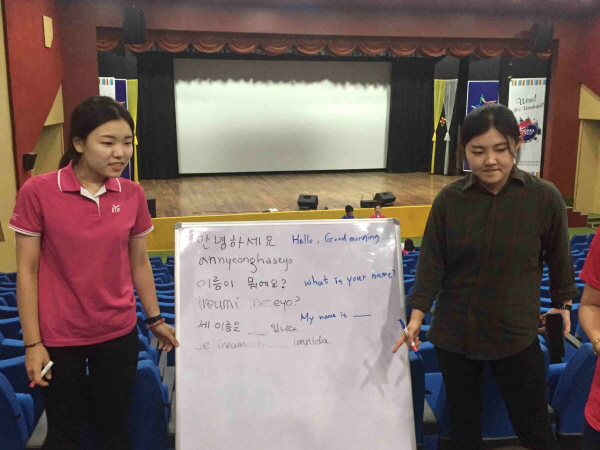 안녕하세요 Hello, Good morning...
annyeonghaseyo
이름이 뭐예요? what is your name?
ireumi eyo?
제 이름은 __ 입니다. My name is __
ireum imnida.